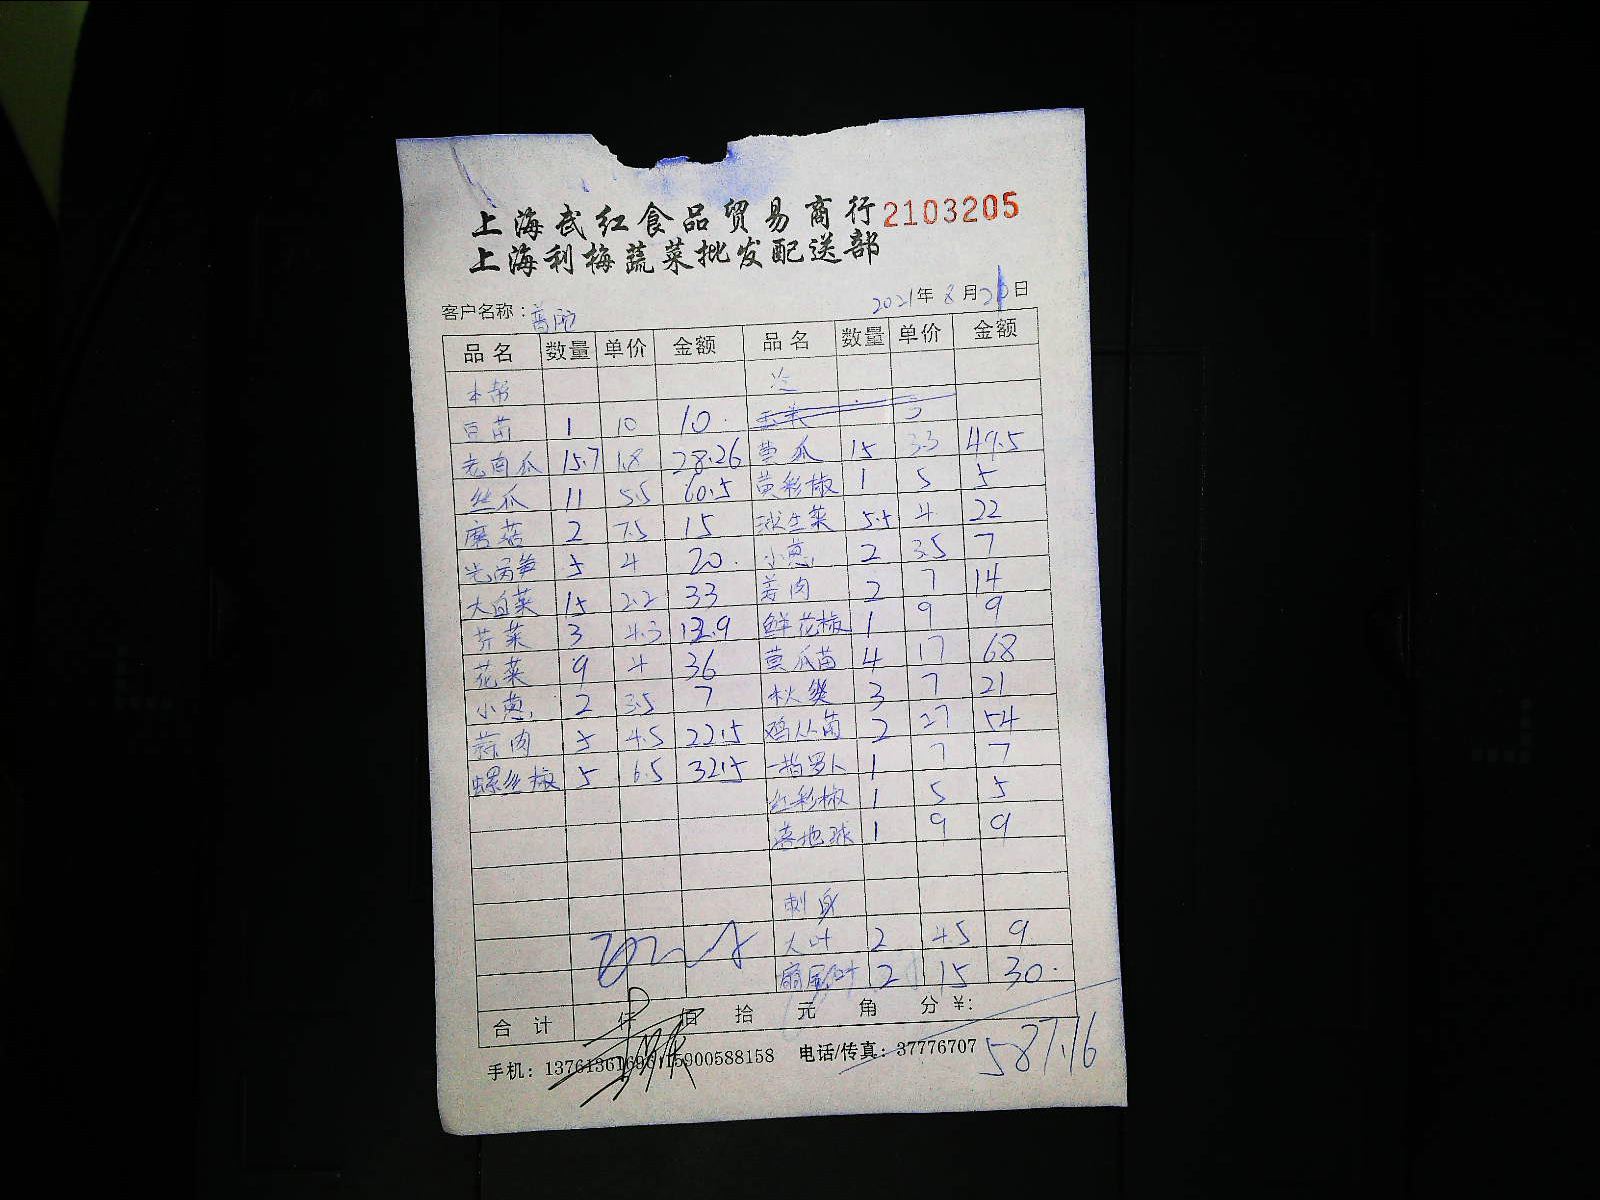 上海武红食品贸易商行 2103205
上海利梅蔬菜批发配送部
客户名称：普陀 2021年8月 日
品名 数量 单价 金额 品名 数量 单价 金额
本帮 冷
豆苗 1 10 10.
老南瓜 15.7 1.8 28.26 黄瓜 15 3.3 49.5
丝瓜 11 5.5 60.5 黄彩椒 1 5 5
磨菇 2 7.5 15 球生菜 5.5 4 22
光莴笋 5 4 20. 小葱 2 3.5 7
大白菜 15 2.2 33 姜肉 2 7 14
芹菜 3 4.3 12.9 鲜花椒 1 9 9
花菜 9 4 36 黄瓜苗 4 17 68
小葱 2 3.5 7 秋葵 3 7 21
蒜肉 5 4.5 22.5 鸡从菌 2 27 54
螺丝椒 5 6.5 32.5 一指罗卜 1 7 7
红彩椒 1 5 5
1 9 9
刺身
大叶 2 4.5 9
2 15 30.
合计 仟 佰 拾 元 角 分 ¥:
587.16
手机：13761361696/15900588158 电话/传真：37776707